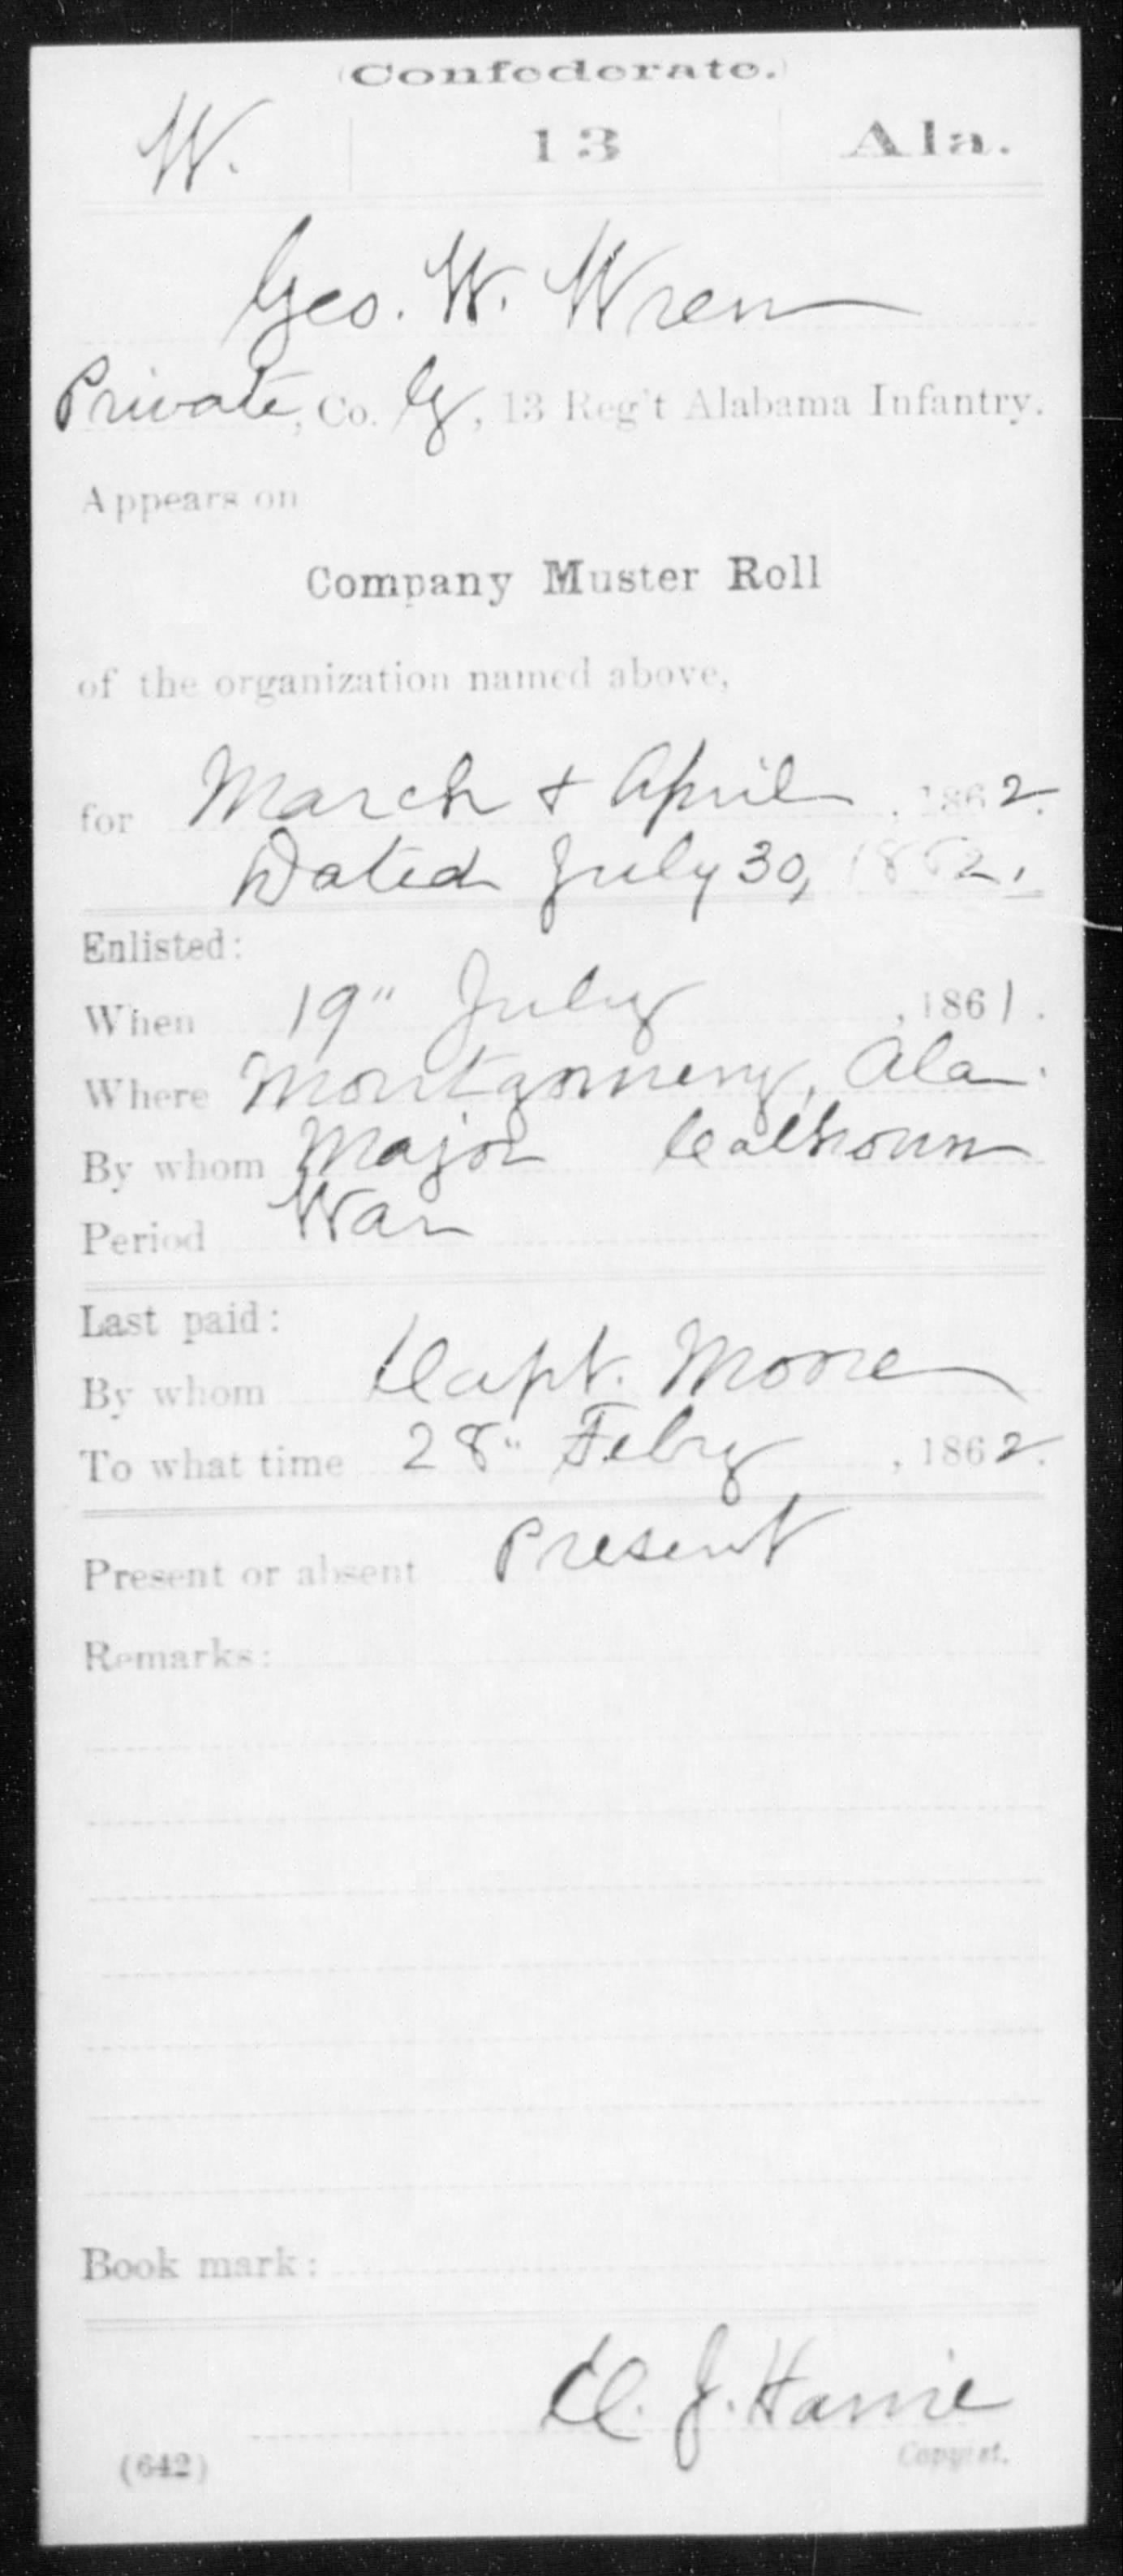 (Confederate.)
W. 13 Ala.
Geo. W. Wren
Private, Co. G, 13 Reg't Alabama Infantry.
Appears on
Company Muster Roll
of the organization named above,
for March + April, 1862.
Dated July 30, 1862.
Enlisted:
When 19" July, 1861.
Where Montgomery, Ala.
By whom Major Calhoun
Period War
Last paid:
By whom Capt. Moore
To what time 28" Feby, 1862.
Present or absent Present
Remarks:
Book mark:
J. Harrie
(642) Copyist.